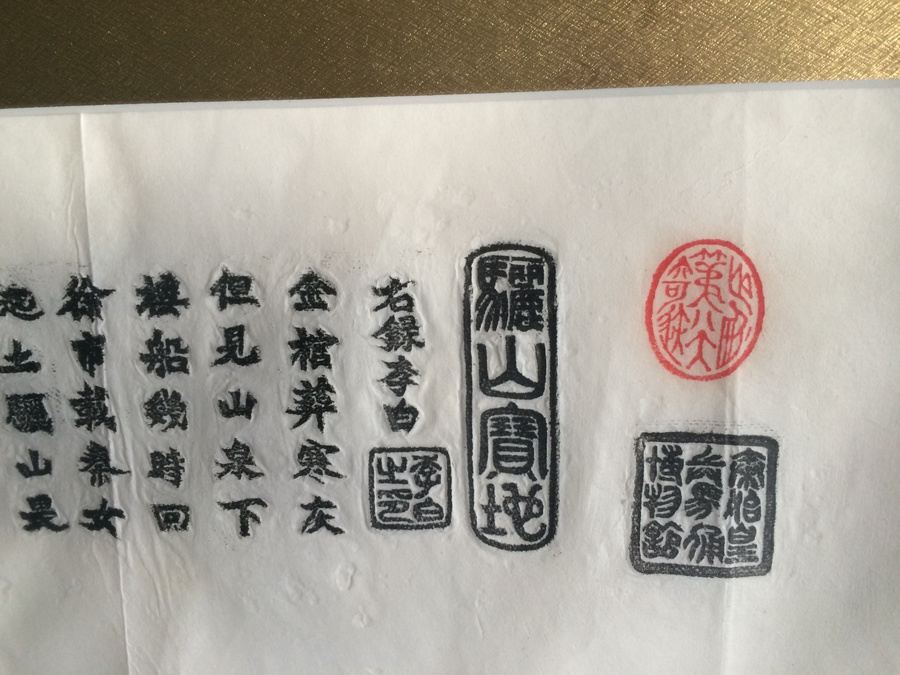 起土驪山
徐市載秦女
樓船幾時回
但見山泉下
金棺葬寒灰
右錄李白
李白之印
驪山寶地
世界第八大奇迹
秦始皇兵馬俑博物館